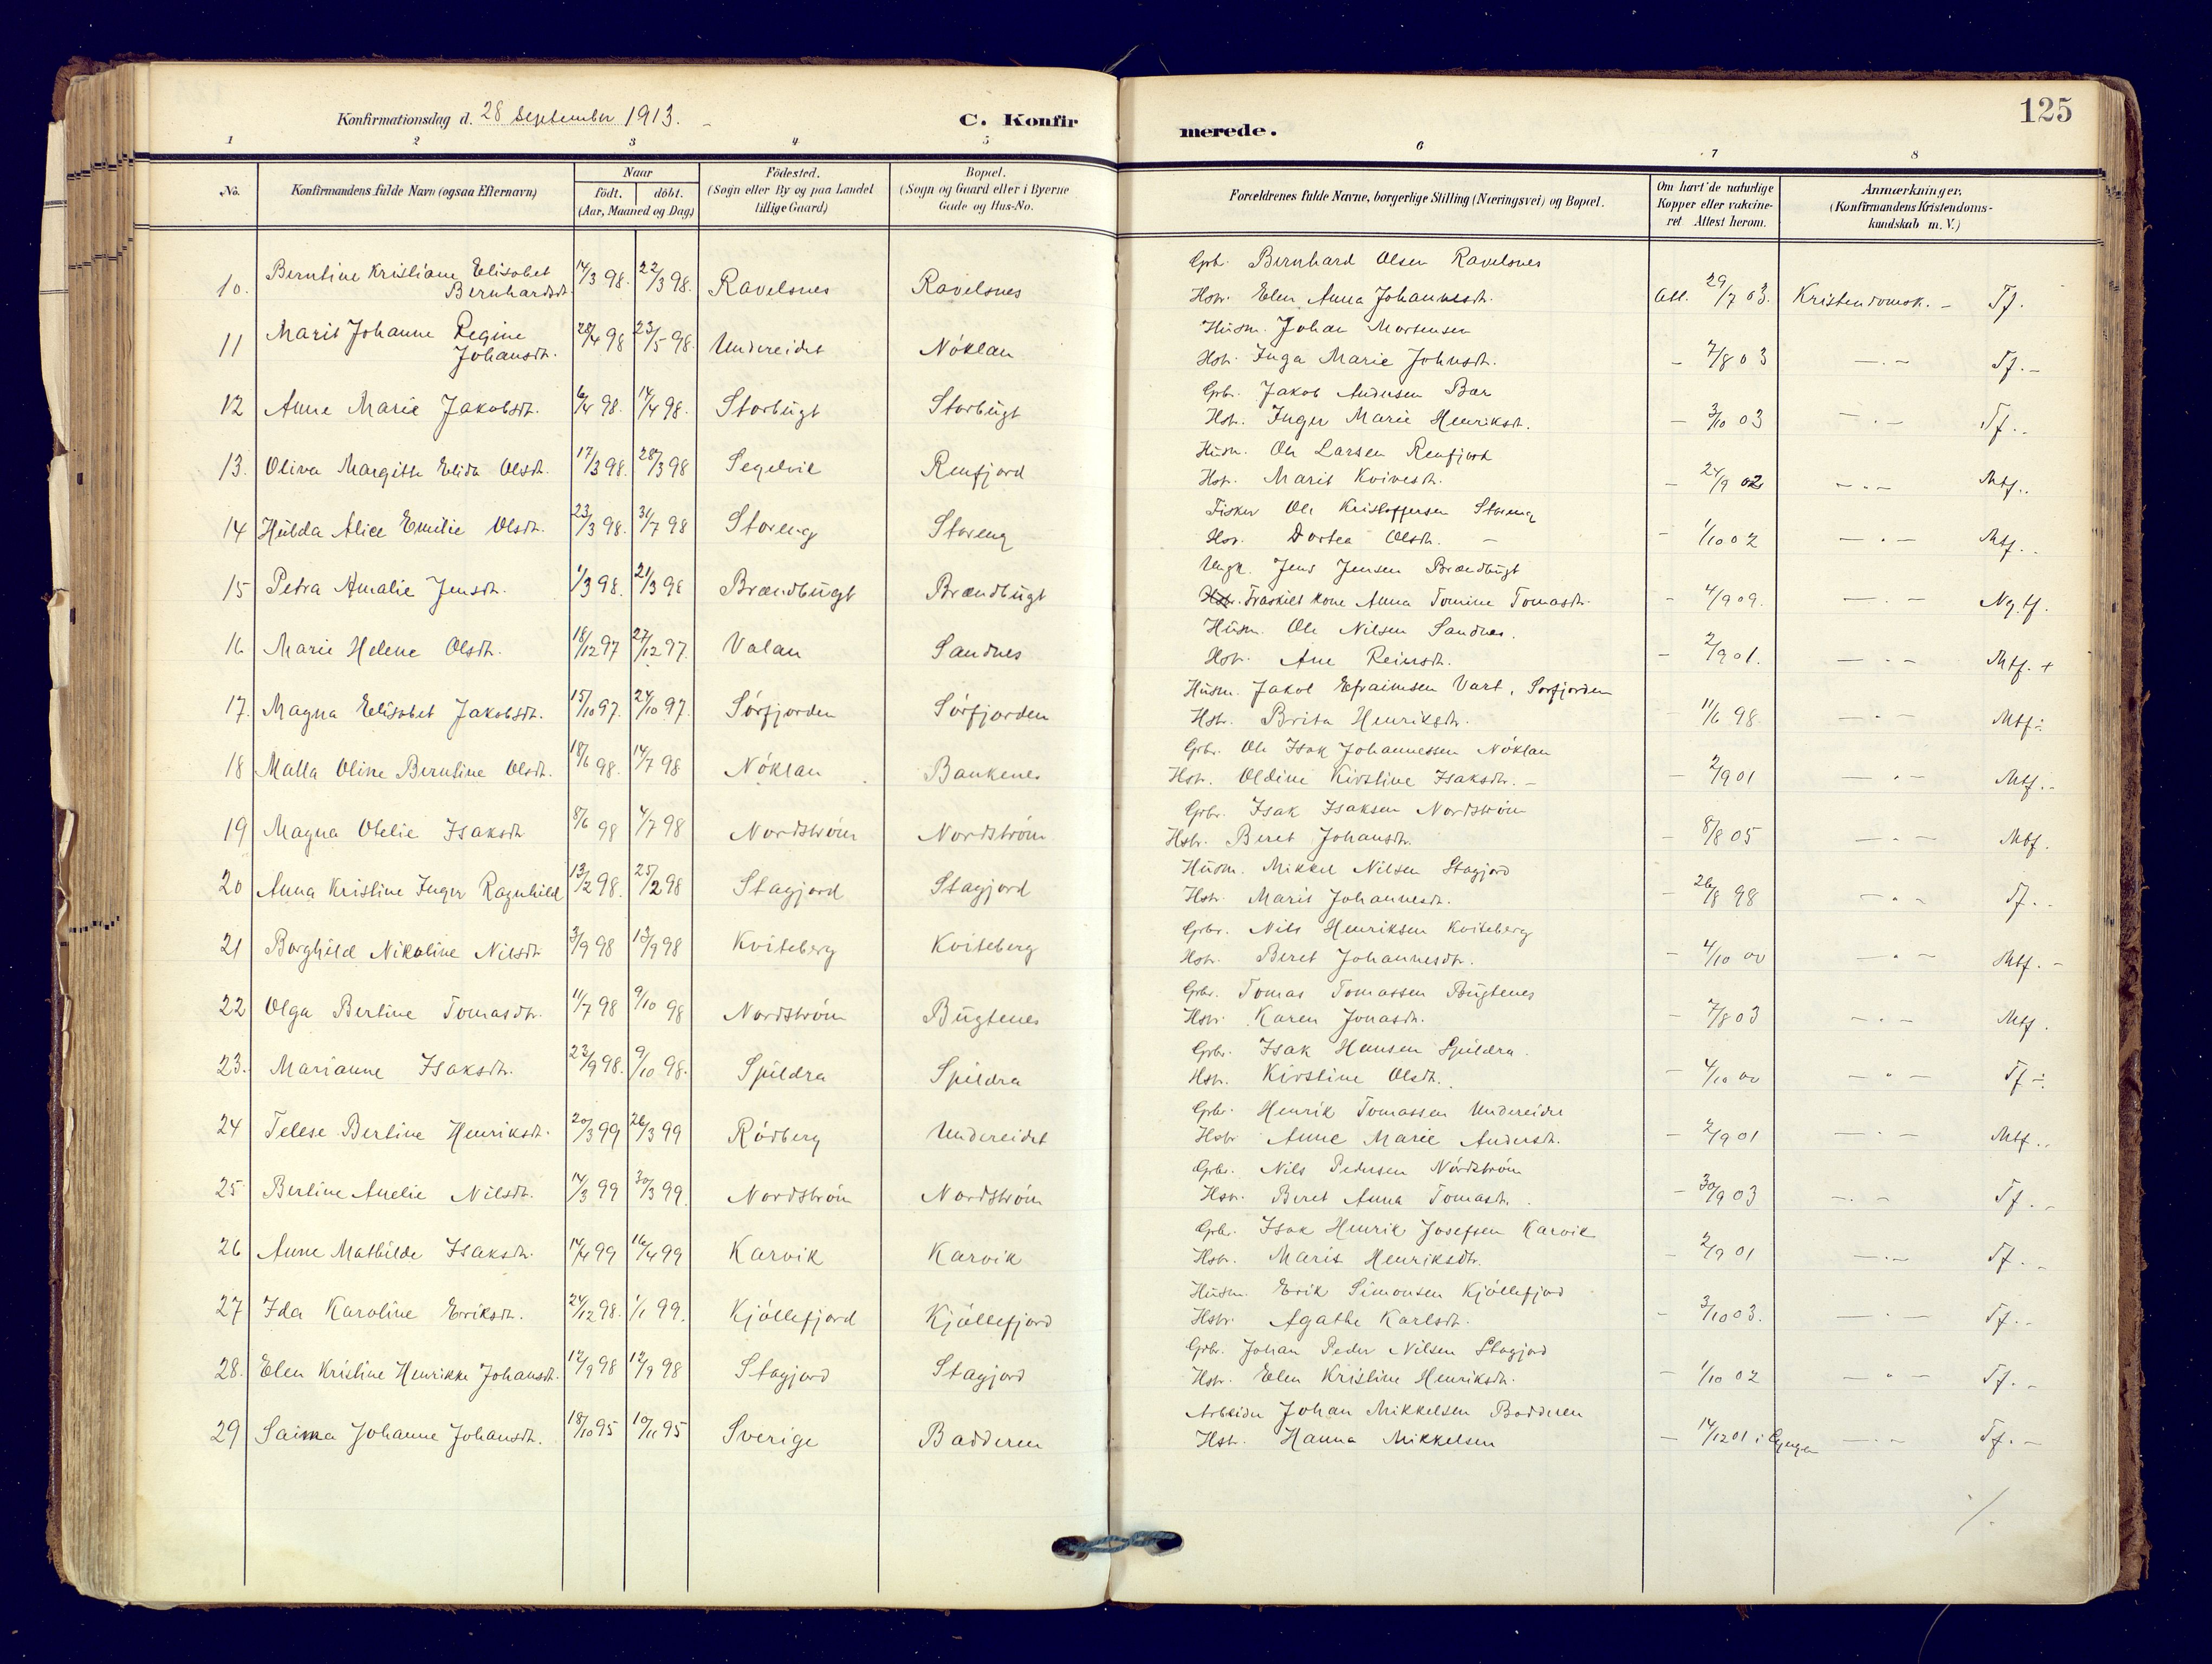 125
Konfirmationsdag d. 28 September 1913.
C. Konfirmerede.
1 2 3 4 5 6 7 8
No. Konfirmandens fulde Navn (ogsaa Efternavn) Naar födt. döbt. (Aar, Maaned og Dag) Födested. (Sogn eller By og paa Landet tillige Gaard) Bopæl. (Sogn og Gaard eller i Byerne Gade og Hus-No. Forældrenes fulde Navne, borgerlige Stilling (Næringsvei) og Bopæl. Om havt de naturlige Kopper eller vakcineret Attest herom. Anmærkninger. (Konfirmandens Kristendomskundskab m. V.)
Gbr. Bernhard Olsen Ravelsnes
10. Berntine Kristiane Elisabet Bernhardsdt. 14/3 98. 22/3 98. Ravelsnes Ravelsnes Hstr. Elen Anna Johannesdt. Att. 29/7 03. Kristendomsk. - Tf.
Husm. Johan Mortensen
11 Marit Johanne Regine Johansdt. 28/4 98 23/5 98. Undereidet Nöklan Hstr. Inga Marie Johnsdt. - 7/8 03 — . — Tf. -
Gbr. Jakob Andersen Bær
12 Anne Marie Jakobsdt. 6/4 98. 14/4 98. Storbugt Storbugt Hstr. Inger Marie Henriksdt. - 3/10 03 — . — Tf..
Husm. Ole Larsen Renfjord
13. Oliva Margitte Elida Olsdt. 17/3 98. 28/3 98 Segelvik Renfjord Hstr. Marit Kvivesdt. - 24/9 02 — . — Mtf..
Fisker Ole Kristoffersen Storeng
14 Hulda Alice Emilie Olsdt. 23/3 98. 31/7 98 Storeng Storeng Hstr. Dortea Olsdt. — - 1/10 02 — . — Mtf..
Ungk. Jens Jensen Brændbugt
15 Petra Amalie Jensdt. 1/3 98. 21/3 98 Brændbugt Brændbugt Fraskilt kone Anna Tomine Tomasdt. - 4/9 09. — . — Ng. tf.
Husm. Ole Nilsen Sandnes.
16 Marie Helene Olsdt. 18/12 97 27/12 97. Valan Sandnes Hstr. Ane Reinsdt. - 2/9 01. — . — Mtf. +
Husm. Jakob Efraimsen Vart, Sörfjorden
17. Magna Elisabet Jakobsdt. 15/10 97. 24/10 97. Sörfjorden Sörfjorden Hstr. Brita Henriksdt. - 11/6 98 — . — Mtf÷
Gbr. Ole Isak Johannessen Nöklan
18 Malla Oline Berntine Olsdt. 18/6 98. 14/7 98 Nöklan Bankenes Hstr. Oldine Kirstine Isaksdtr. - - 2/9 01 — . — Mtf. -
Gbr. Isak Isaksen Nordström
19 Magna Otelie Isaksdt 8/6 98 4/7 98 Nordström Nordström Hstr. Beret Johansdtr. - 8/8 05 — . — Mtf.
Husm. Mikkel Nilsen Stagjord
20 Anna Kristine Inger Ragnhild 13/2 98. 25/2 98 Stagjord Stagjord Hstr. Marit Johannesdt. - 26/8 98 — . — Tf. -
Gbr. Nils Henriksen Kviteberg
21 Borghild Nikoline Nilsdt 3/9 98 13/9 98 Kviteberg Kviteberg Hstr. Beret Johannesdtr. - 4/10 00 — . — Mtf. -
Gbr. Tomas Tomassen Bugtenes
22 Olga Bertine Tomasdtr. 11/7 98 9/10 98 Nordström Bugtenes Hstr. Karen Jonasdt. - 7/8 03 — . — Mtf.
Gbr. Isak Hansen Spildra.
23. Marianne Isaksdt. 22/9 98. 9/10 98. Spildra Spildra Hstr. Kirstine Olsdt. - 4/10 00 — . — Tf ÷
Gbr. Henrik Tomassen Undereidet
24 Telese Bertine Henriksdt. 20/3 99 26/3 99 Rödberg Undereidet Hstr Anne Marie Andersdt. - 2/9 01 — . — Mtf..
Gbr. Nils Pedersen Nordström
25 Bertine Anelie Nilsdt. 14/3 99 30/3 99. Nordström Nordström Hstr. Beret Anna Tomasdt. - 30/9 03 — . — Tf. -
Gbr. Isak Henrik Josefsen Karvik
26 Anne Mathilde Isaksdt. 14/4 99 16/4 99 Karvik Karvik Hstr. Marit Henriksdtr. - 2/9 01 — . — Tf. -
Husm. Erik Simonsen Kjöllefjord
27 Ida Karoline Eriksdt. 24/12 98. 1/1 99. Kjöllefjord Kjöllefjord Hstr. Agathe Karlsdt. - 3/10 03. — . — Tf. -
Gbr. Johan Peder Nilsen Stagjord
28. Elen Kristine Henrikke Johansdt. 12/9 98 12/9 98 Stagjord Stagjord Hstr. Elen Kristine Henriksdt. - 1/10 02 — . — Tf. -
Arbeider Johan Mikkelsen Badderen
29 Saima Johanne Johansdt. 18/10 95 10/11 95 Sverige Badderen Hstr. Hanna Mikkelsen - 14/12 01 i — . — Tf. -